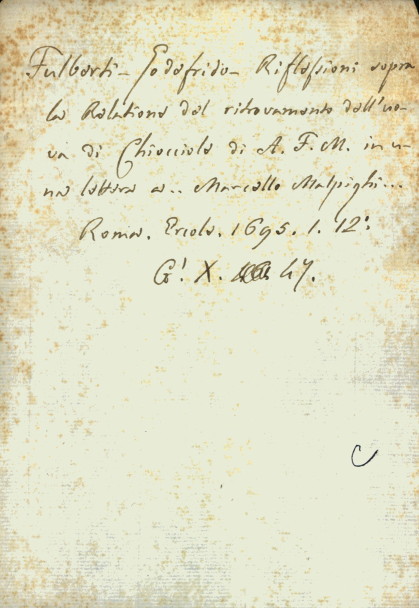 Fulberti - Godefrido - Riflessioni sopra
la Relatione del ritrovamento dell'uo-
va di Chiocciole di A. F. M. in u-
na lettera a.. Marcello Malpighi...
Roma. Ercole. 1695. 1. 12º.
G! X. 47.
C